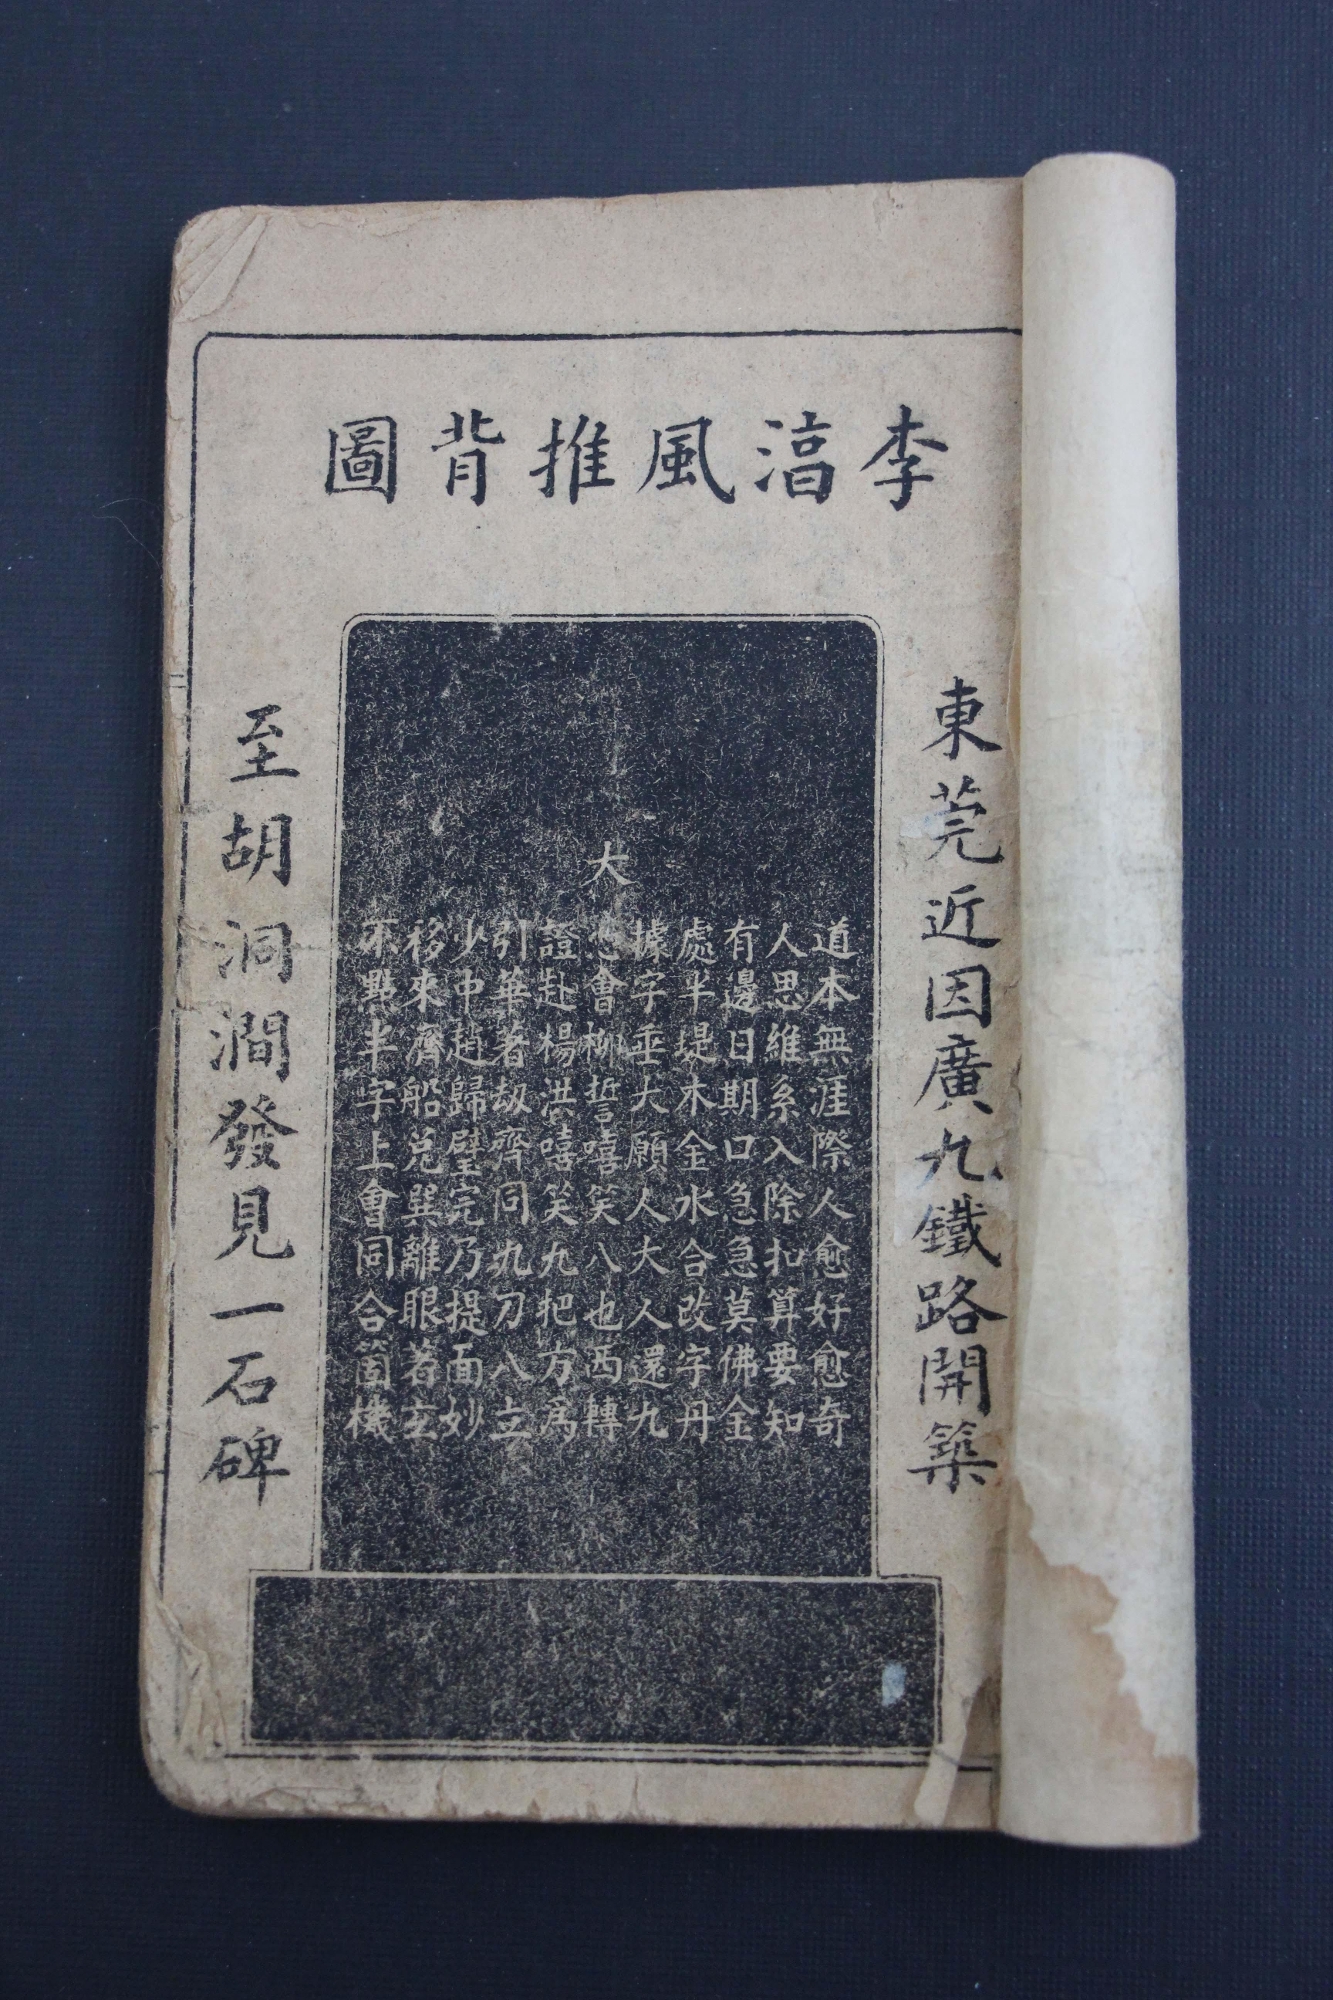 李湻風推背圖
東莞近因廣九鐵路開築
道本無涯際人愈好愈奇
人思維系入除扣算要知
有邊日期口急急莫佛金
處半堤木金水合改字丹
據字垂大願人大人還九
大
會柳誓嘻笑八也西轉
證赴楊洪嘻笑九把方爲
引華著劫齊同九刀八立
少中趙歸壁完乃提面妙
移來齊船兌巽離眼著玄
不點半字上會同合箇機
至胡洞澗發見一石碑